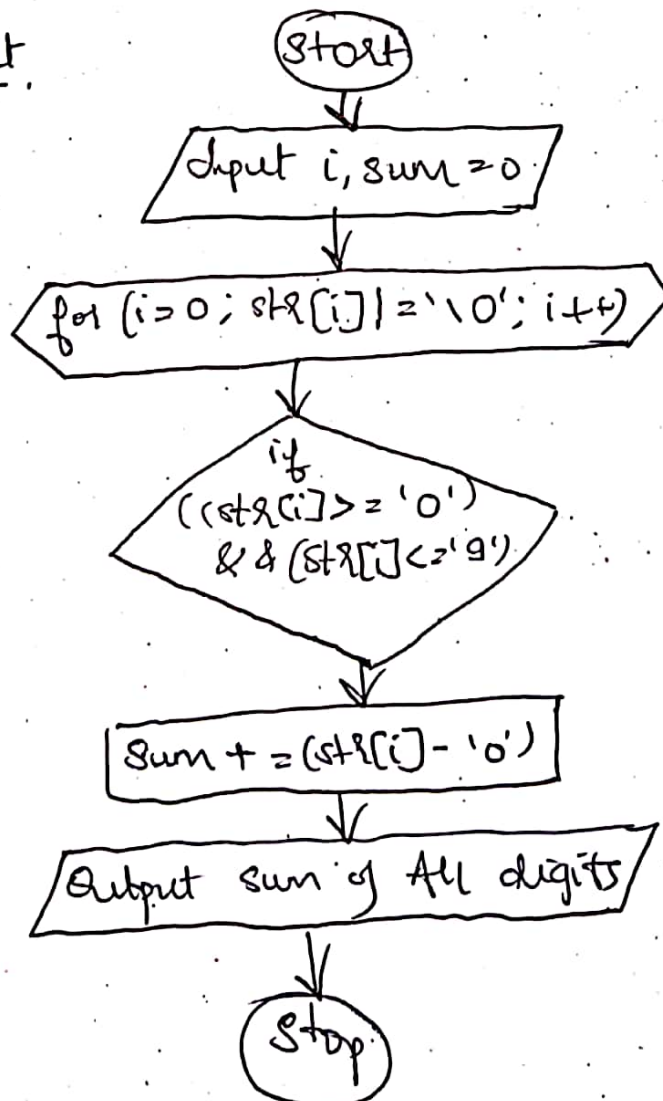 t
Start
Input i, sum = 0
for (i=0; str[i] != '\0'; i++)
if
((str[i] >= '0')
&& (str[] <= '9')
Sum += (str[i] - '0')
Output sum of All digits
Stop